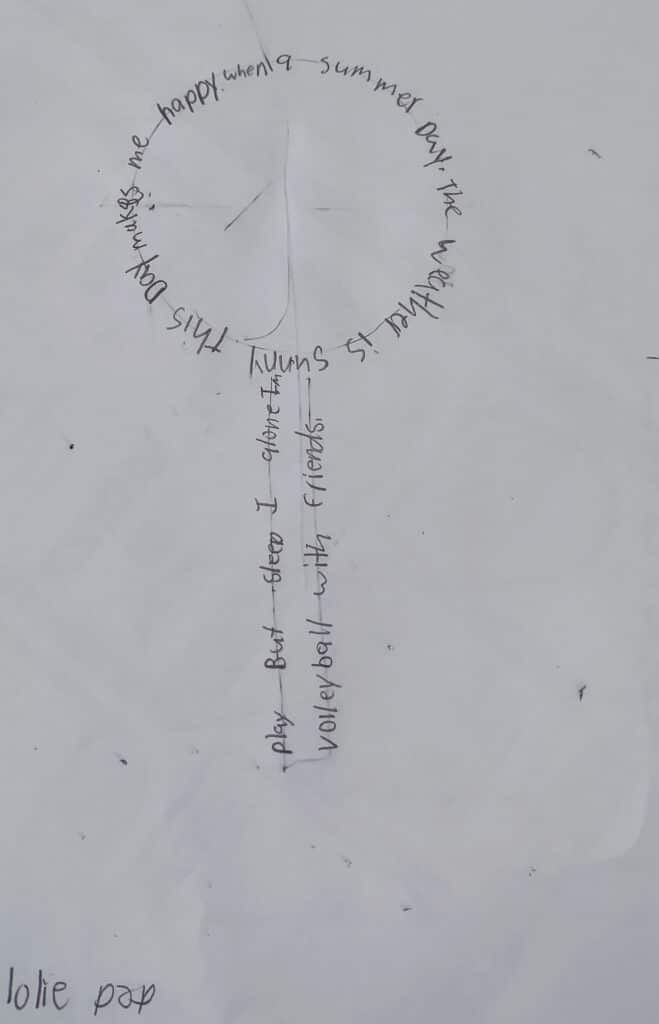 a summer Day. The weather is sunny. This Day makes me happy. when I
play But sleep I alone I'm
volleyball with friends.
lolie pap